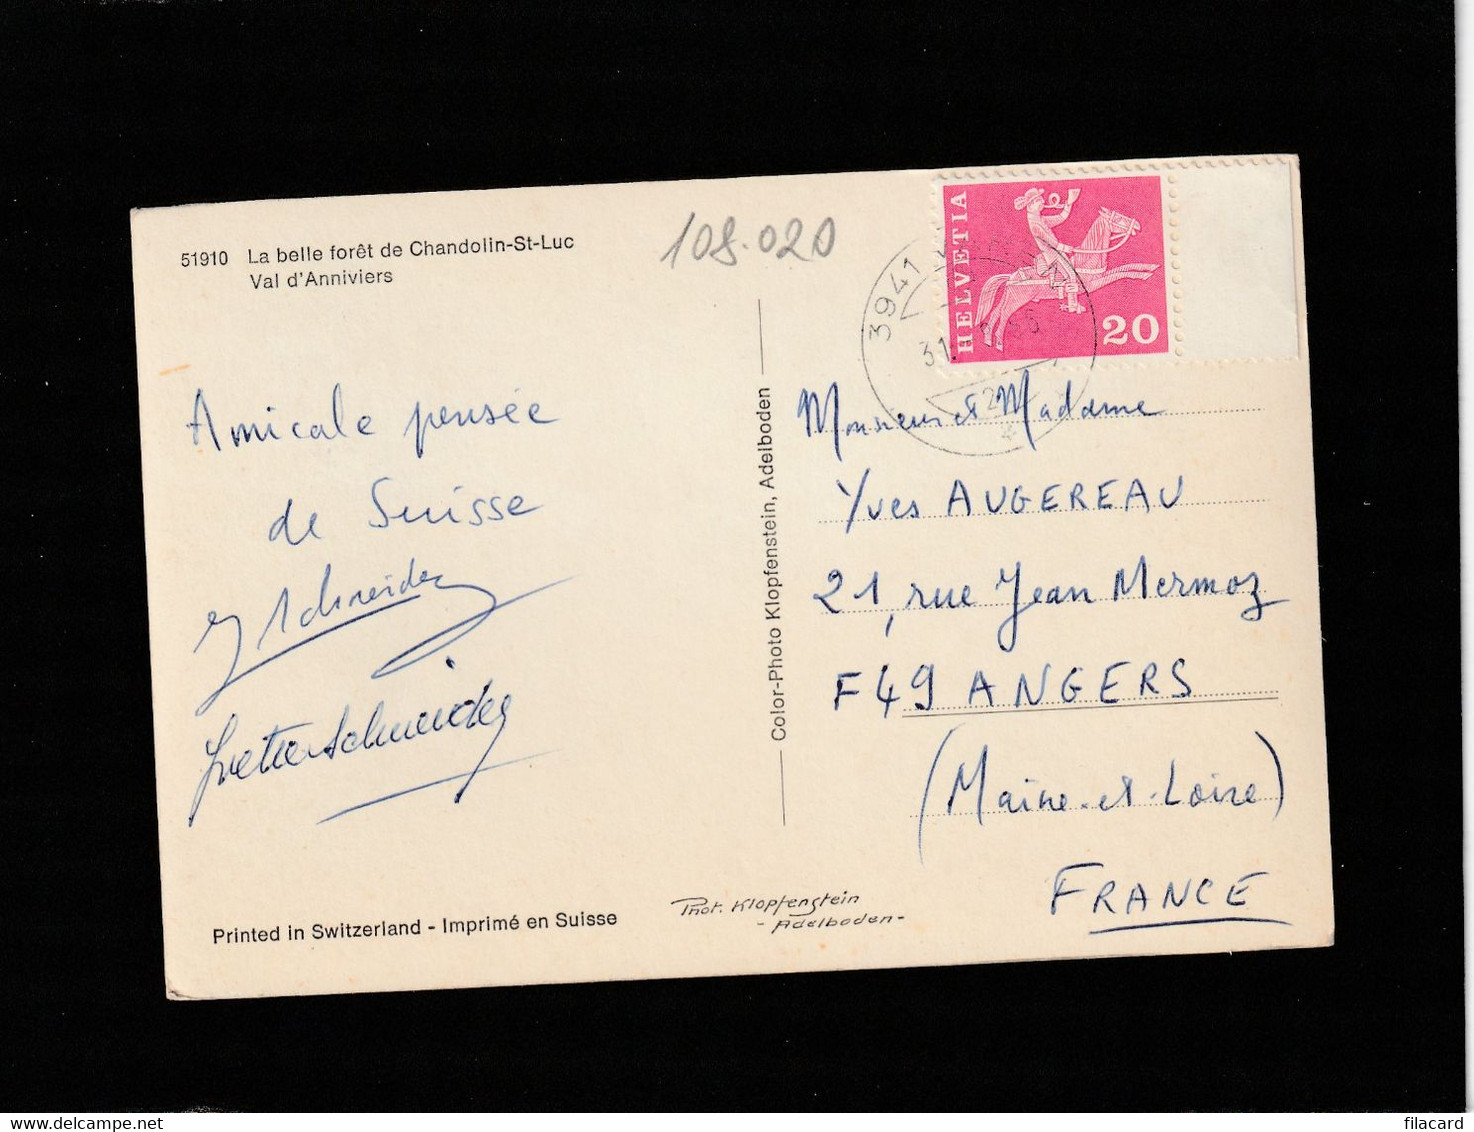 51910 La belle forêt de Chandolin-St-Luc
Val d'Anniviers
108.020
HELVETIA
20
3941
31.
Amicale pensée
de Suisse
Schneider
Yvette Schneider
Color-Photo Klopfenstein, Adelboden
Monsieur et Madame
Yves AUGEREAU
21, rue Jean Mermoz
F49 ANGERS
(Maine-et-Loire)
FRANCE
Printed in Switzerland - Imprimé en Suisse
Phot. Klopfenstein
- Adelboden -
filacard